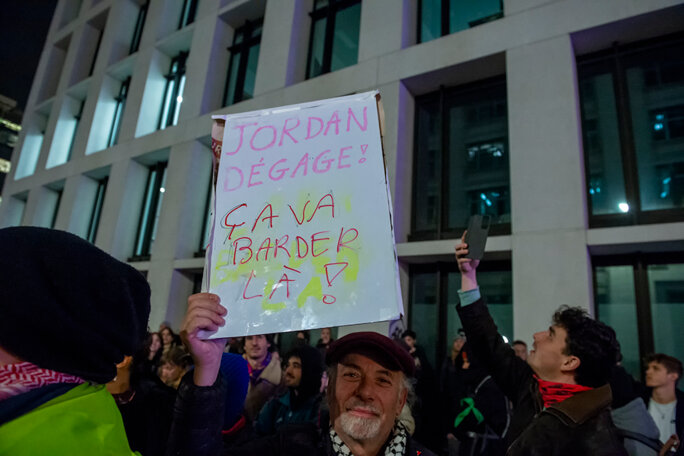 JORDAN
DÉGAGE!
ÇA VA
BARDER
LÀ!